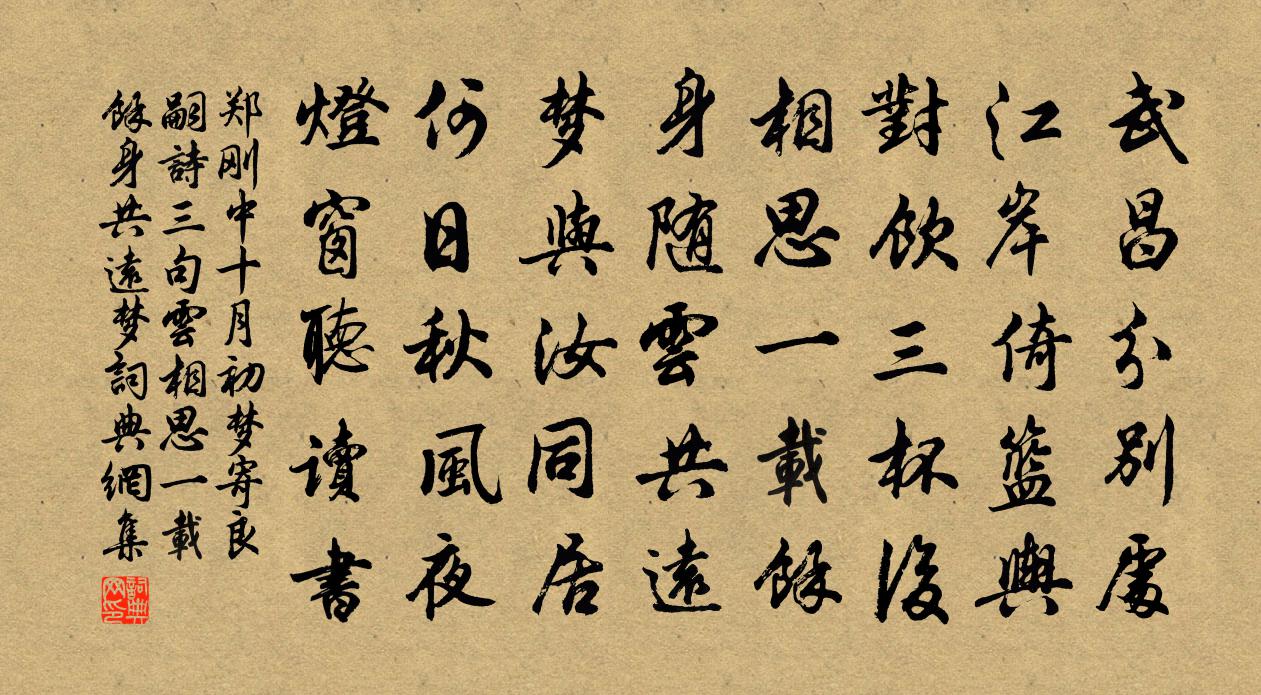 武昌分别處
江岸倚籃輿
對飲三杯後
相思一載餘
身随雲共遠
梦與汝同居
何日秋風夜
燈窗聽讀書
郑刚中十月初梦寄良
嗣詩三句雲相思一載
餘身共遠梦詞典網集
詞典
网印